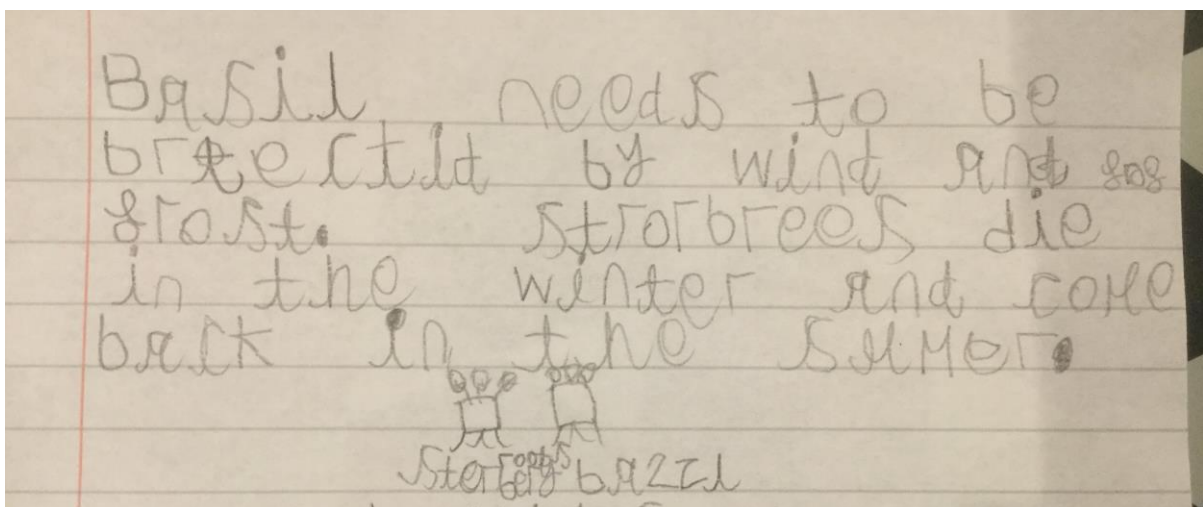 Basil needs to be
brtectid by wind and
frost. strorbrees die
in the winter and come
back in the summor.
bazil